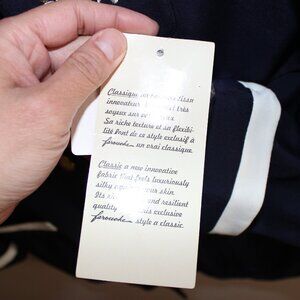 Classique
innovateur très
soyeux sur
Sa riche texture et sa flexibi-
lité font de ce style exclusif à
Farouche un vrai classique.
Classic a new innovative
fabric that feels luxuriously
silky your skin.
Its and resilient
quality this exclusive
Farouche style a classic.